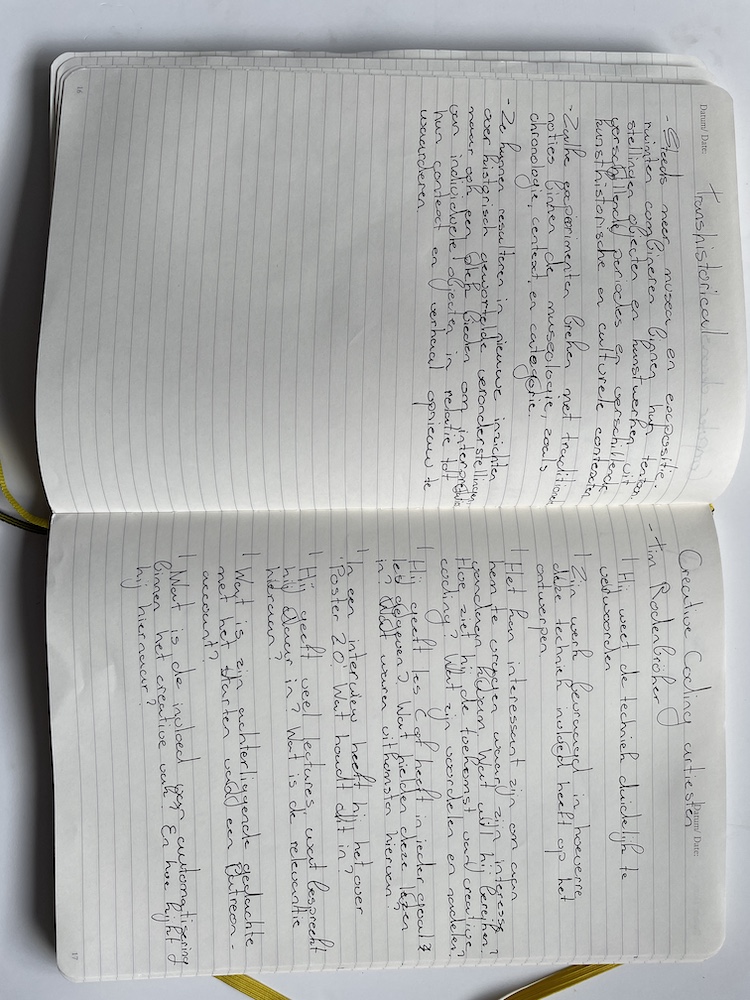 Datum/ Date:
Transhistorical
- Steeds meer musea en expositie-
ruimten combineren binnen hun tentoon
stellingen objecten en kunstwerken uit
verschillende periodes en verschillende
kunsthistorische en culturele contexten
- Zulke experimenten breken met traditionele
noties binnen de museologie, zoals
chronologie, context, en categorie.
- Ze kunnen resulteren in nieuwe inzichten
over historisch gewortelde veronderstellingen
maar ook een plek bieden om interpretatie
van individuele objecten in relatie tot
hun context en verhaal opnieuw te
waarderen.
16
Datum/ Date:
Creative Coding artiesten
- Tim Rodenbröker
! Hij weet de techniek duidelijk te
verwoorden
! Zijn werk bevraagd in hoeverre
deze techniek invloed heeft op het
ontwerpen.
! Het kan interessant zijn om aan
hem te vragen waar zijn interesse
vandaan kwam. Wat wil hij bereiken?
Hoe ziet hij de toekomst van creative
coding? Wat zijn voordelen en nadelen?
! Hij geeft les (of heeft in ieder geval
les gegeven? Wat hielden deze lezen
in? Wat waren uitkomsten hiervan?
! In een interview heeft hij het over
'Poster 2.0' Wat houdt dit in?
! Hij geeft veel lectures, wat besprecht
hij daar in? Wat is de relevantie
hieraan?
! Wat is zijn achterliggende gedachte
met het starten van een Patreon-
account?
! Wat is de invloed van automatisering
binnen het creative vak? En hoe kijkt
hij hiernaar?
17